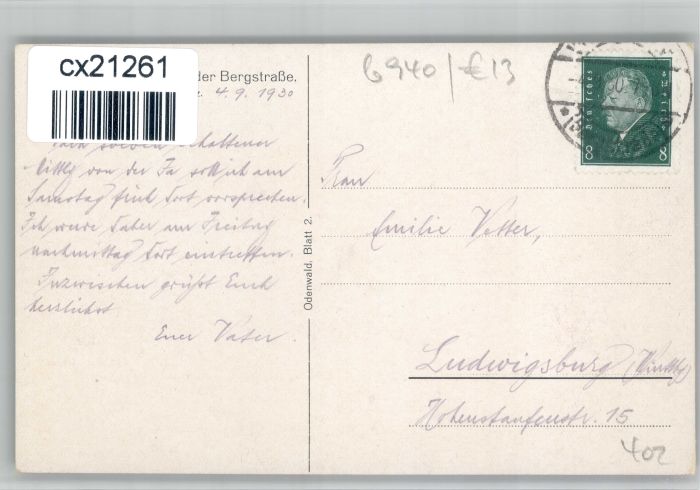 cx21261
der Bergstraße.
4.9.1930
Nach soeben erhaltener
Mittlg von der Fa soll ich am
Samstag früh dort vorsprechen.
Ich werde daher am Freitag
nachmittag dort eintreffen.
Inzwischen grüßt Euch
herzlichst
Euer Vater.
Odenwald. Blatt 2.
6940/€13
Deutsches
8 8
Frau
Emilie Vetter,
Ludwigsburg (Württbg)
Hohenstaufenstr. 15
402